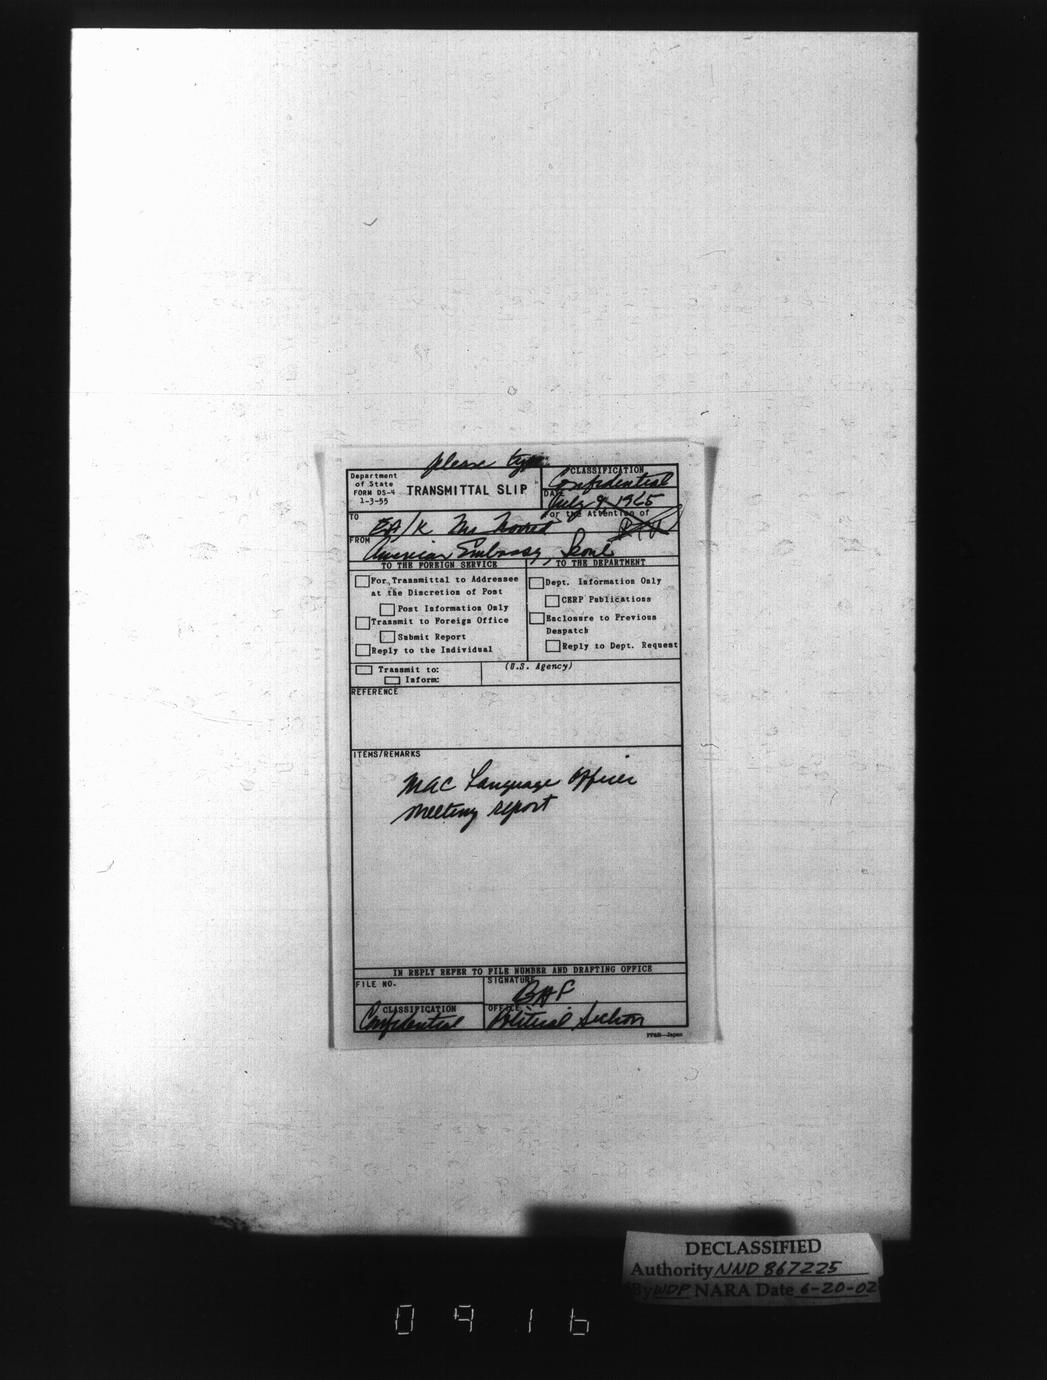 please type
Department
of State
FORM DS-4
1-3-55
TRANSMITTAL SLIP
CLASSIFICATION
Confidential
DATE
July 9, 1965
TO
EA/K Mr.
For the Attention of
FROM
American Embassy, Seoul
TO THE FOREIGN SERVICE
TO THE DEPARTMENT
For Transmittal to Addressee
at the Discretion of Post
Post Information Only
Transmit to Foreign Office
Submit Report
Reply to the Individual
Dept. Information Only
CERP Publications
Enclosure to Previous
Despatch
Reply to Dept. Request
Transmit to:
Inform:
(U.S. Agency)
REFERENCE
ITEMS/REMARKS
MAC Language Officer
Meeting report
IN REPLY REFER TO FILE NUMBER AND DRAFTING OFFICE
FILE NO.
SIGNATURE
BAF
CLASSIFICATION
Confidential
OFFICE
Political Section
DECLASSIFIED
Authority NND 867225
By WDP NARA Date 6-20-02
0916